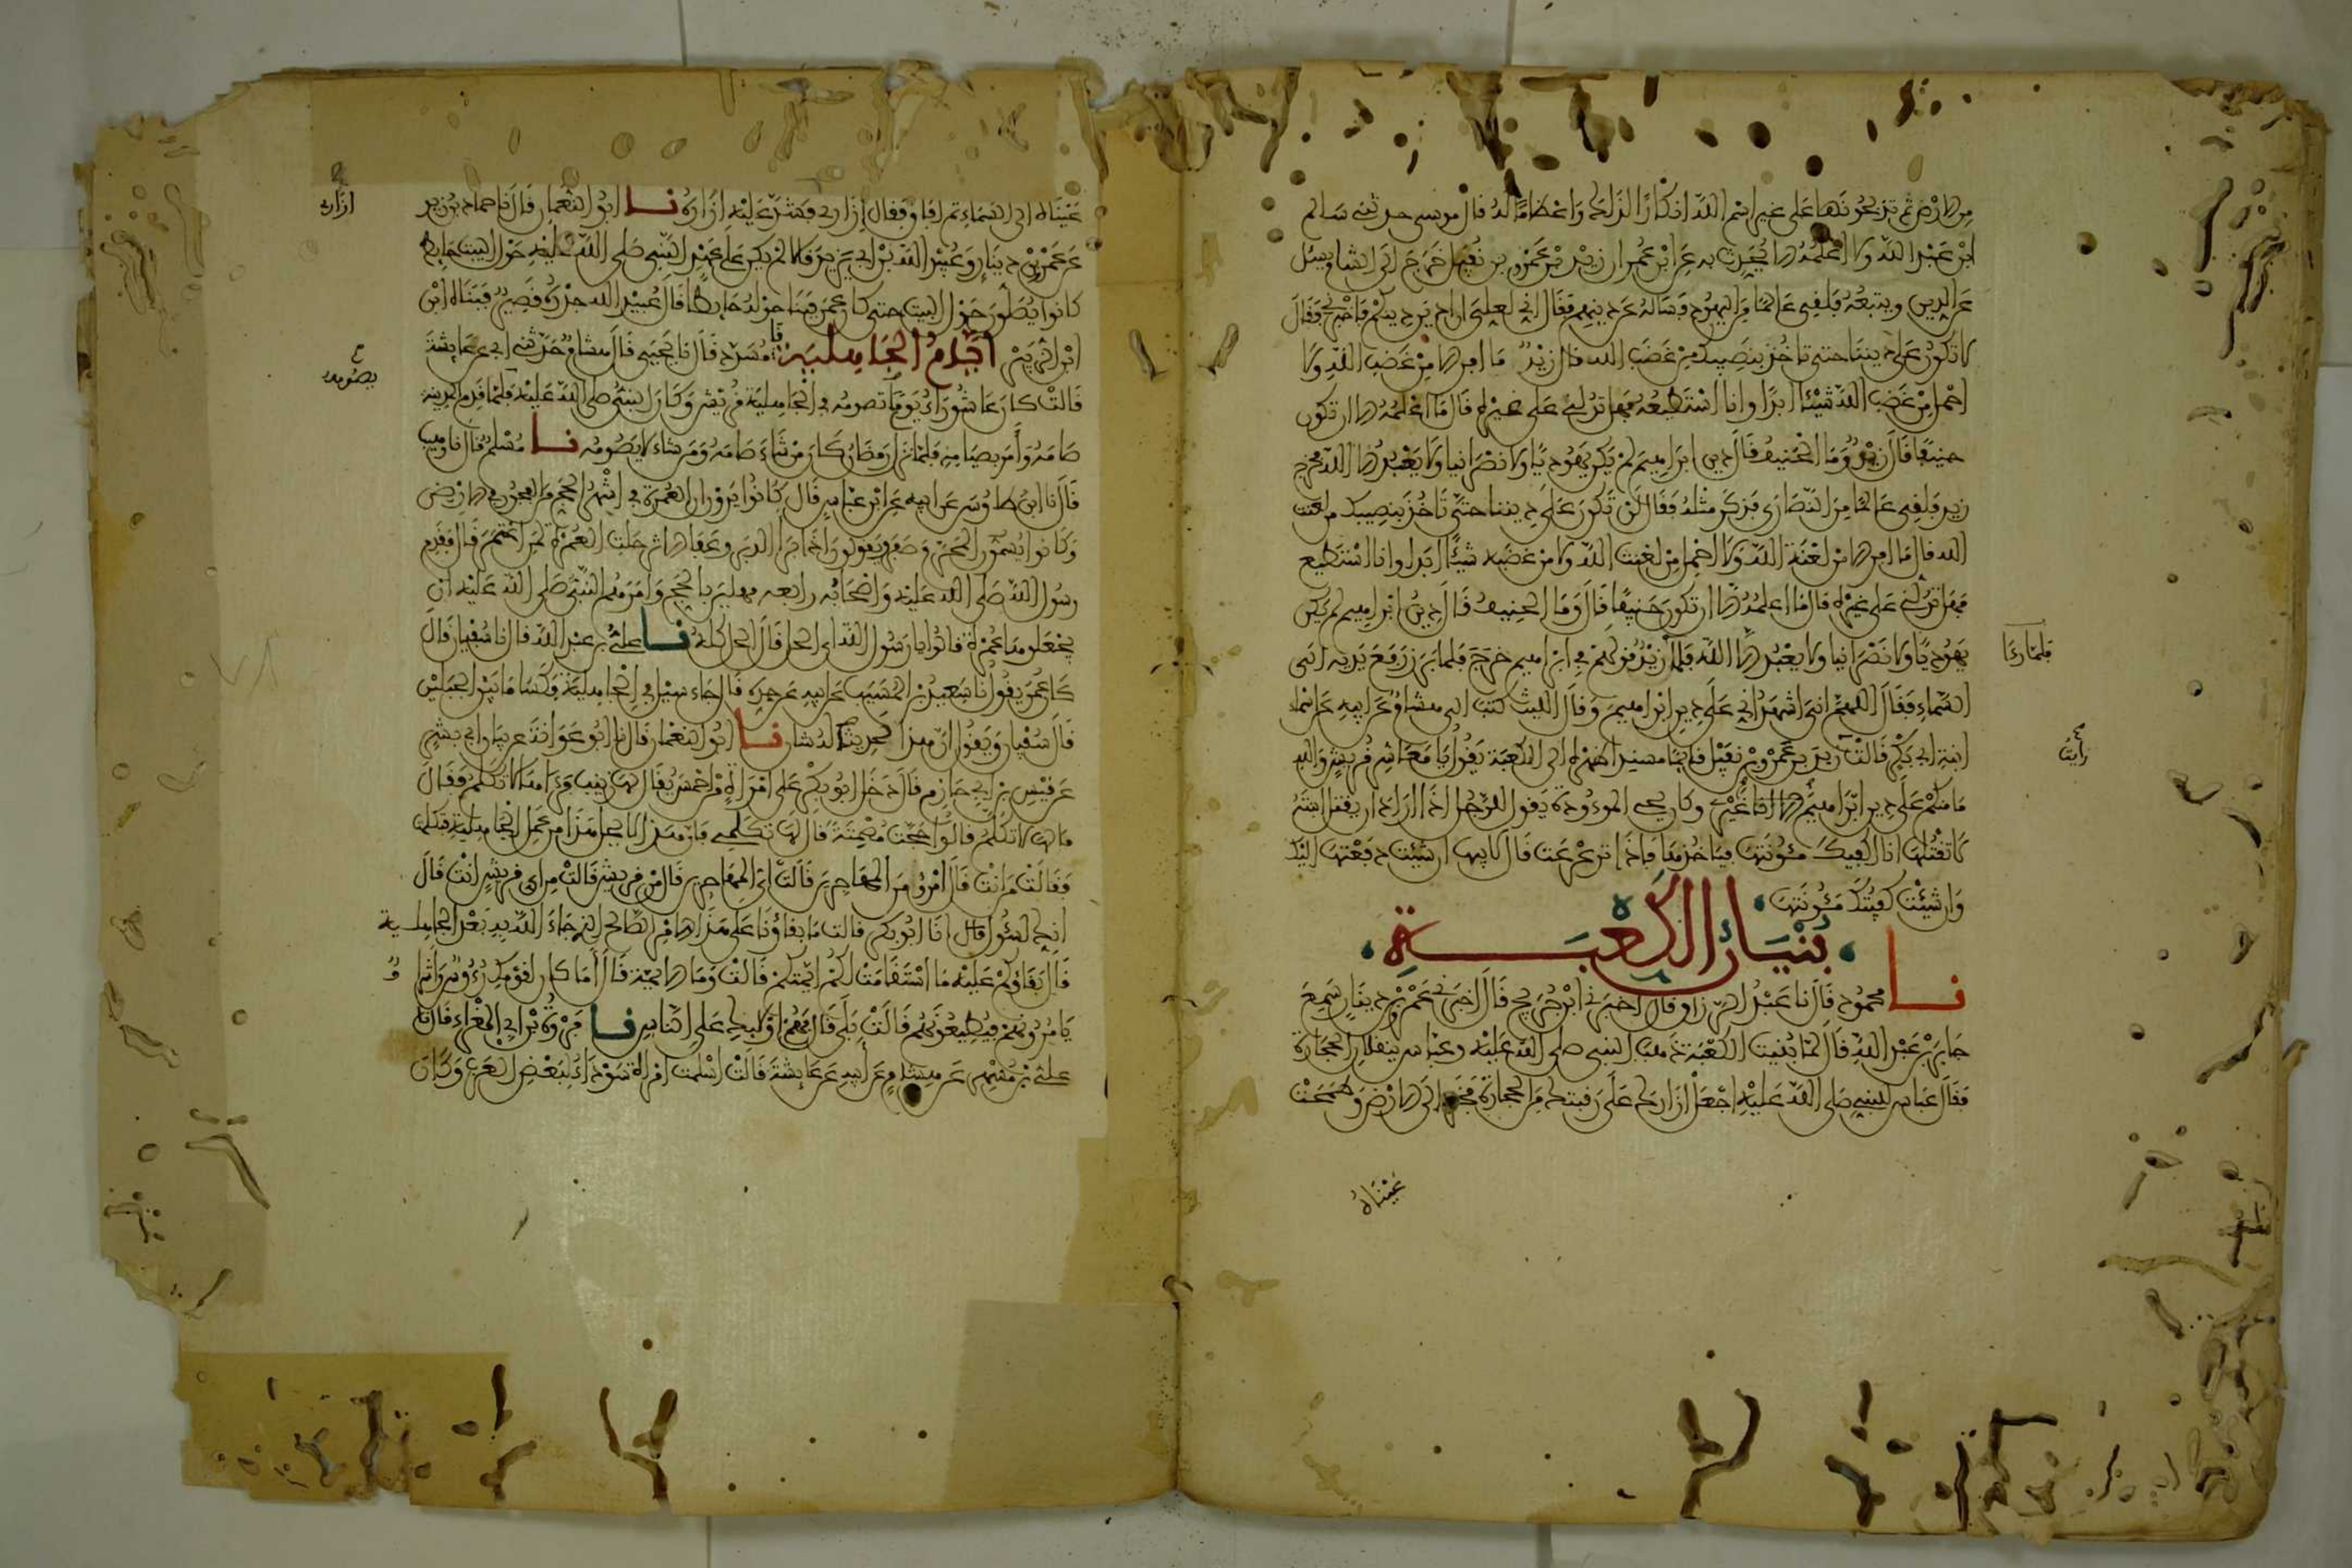 من الارض ثم تذبحونها على غير اسم الله انكارا لذلك واعظاما له قال موسى حدثني سالم
ابن عبد الله ولا اعلمه الا يحدث به عن ابن عمر ان زيد بن عمرو بن نفيل خرج الى الشام يسئل
عن الدين ويتبعه فلقي عالما من اليهود فساله عن دينهم فقال اني لعلي ان ادين دينكم فاخبرني فقال
لا تكون على ديننا حتى تاخذ بنصيبك من غضب الله قال زيد ما افر الا من غضب الله ولا
احمل من غضب الله شيئا ابدا وانا استطيعه فهل تدلني على غيره قال ما اعلمه الا ان تكون
حنيفا قال زيد وما الحنيف قال دين ابراهيم لم يكن يهوديا ولا نصرانيا ولا يعبد الا الله فخرج
زيد فلقي عالما من النصارى فذكر مثله فقال لن تكون على ديننا حتى تاخذ بنصيبك من لعنت
الله قال ما افر الا من لعنة الله ولا احمل من لعنت الله ولا من غضبه شيئا ابدا وانا استطيع
فهل تدلني على غيره قال ما اعلمه الا ان تكون حنيفا قال وما الحنيف قال دين ابراهيم لم يكن
يهوديا ولا نصرانيا ولا يعبد الا الله فلما زيد قولهم في ابراهيم خرج فلما برز رفع يديه الى
فلما رءا
السماء فقال اللهم اني اشهد اني على دين ابراهيم وقال الليث كتب الي هشام عن ابيه عن اسماء
ابنة ابي بكر قالت زيد بن عمرو بن نفيل قائما مسندا ظهره الى الكعبة يقول يا معاشر قريش والله
رايت
ما منكم على دين ابراهيم غيري وكان يحي الموءودة يقول للرجل اذا اراد ان يقتل ابنته
لا تقتلها انا اكفيك مئونتها فياخذها فاذا ترعرعت قال لابيها ان شئت دفعتها اليك
وان شئت كفيتك مئونتها
بنيان الكعبة
نا محمود قال نا عبد الرزاق قال اخبرني ابن جريج قال اخبرني عمرو بن دينار سمع
جابر بن عبد الله قال لما بنيت الكعبة ذهب النبي صلى الله عليه وعباس ينقلان الحجارة
فقال عباس للنبي صلى الله عليه اجعل ازارك على رقبتك من الحجارة فخر الى الارض وطمحت
عيناه
عيناه الى السماء ثم افاق فقال ازاري فشد عليه ازاره نا ابو النعمان قال نا حماد بن زيد
ازاري
عن عمرو بن دينار وعبيد الله بن ابي يزيد قالا لم يكن على عهد النبي صلى الله عليه حول البيت حايط
كانوا يصلون حول البيت حتى كان عمر فبنا حوله حايطا قال عبيد الله جدره قصير فبناه ابن
ابن الزبير ايام الجاهلية نا مسدد قال نا يحيى قال هشام حدثني ابي عن عايشة
قالت كان عاشوراء يوما تصومه في الجاهلية قريش وكان النبي صلى الله عليه فلما قدم المدينة
يصومه
صامه وأمر بصيامه فلما نزل رمضان كان من شاء صامه ومن شاء لا يصومه نا مسلم قال نا وهيب
قال نا ابن طاوس عن ابيه عن ابن عباس قال كانوا يرون ان العمرة في اشهر الحج من الفجور في الارض
وكانوا يسمون المحرم صفر ويقولون اذا برأ الدبر وعفا الاثر حلت العمرة لمن اعتمر قال فقدم
رسول الله صلى الله عليه واصحابه رابعه مهلين بالحج وامرهم النبي صلى الله عليه ان
يجعلوها عمرة قالوا يا رسول الله اي الحل قال الحل كله نا علي بن عبد الله قال نا سفيان قال
كان عمرو يقول نا سعيد بن المسيب عن ابيه عن جده قال جاء سيل في الجاهلية فكسا ما بين الجبلين
قال سفيان ويقول ان هذا لحديث له شان نا ابو النعمان قال نا ابو عوانة عن بيان ابي بشر
عن قيس بن ابي حازم قال دخل ابو بكر على امرأة من احمس يقال لها زينب فرءاها لا تكلم فقال
ما لها لا تكلم قالوا حجت مصمتة قال لها تكلمي فان هذا لا يحل هذا من عمل الجاهلية فتكلمت
فقالت من انت قال امرؤ من المهاجرين قالت اي المهاجرين قال من قريش قالت من اي قريش انت قال
انك لسئول قال انا ابو بكر قالت ما بقاؤنا على هذا الامر الصالح الذي جاء الله به بعد الجاهلية
قال بقاؤكم عليه ما استقامت لكم ايمتكم قالت وما الايمة قال أما كان لقومك رؤوس واشراف
يامرونهم فيطيعونهم قالت بلى قال فهم اولئك على الناس نا فروة بن ابي المغراء قال نا
علي بن مسهر عن هشام عن ابيه عن عايشة قالت اسلمت امرأة سوداء لبعض العرب وكان